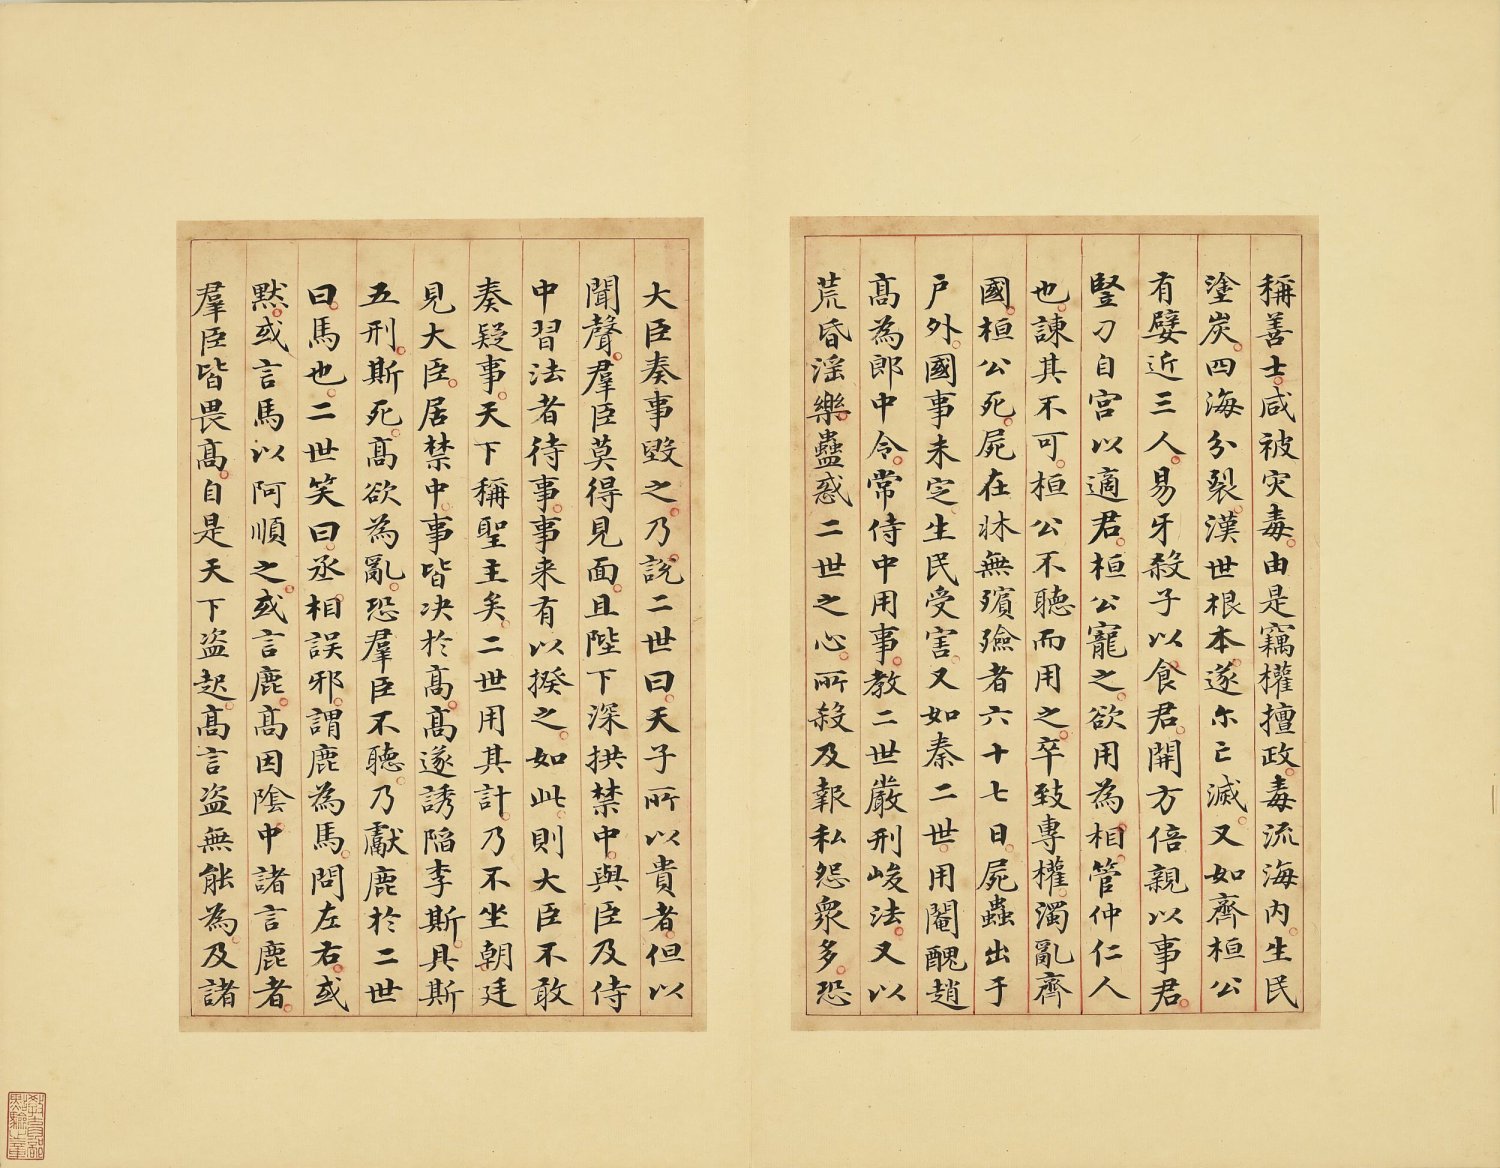 稱善士咸被灾毒由是竊權擅政毒流海内生民
塗炭四海分裂漢世根本遂尓亡滅又如齊桓公
有嬖近三人易牙殺子以食君開方倍親以事君
豎刁自宮以適君桓公寵之欲用為相管仲仁人
也諫其不可桓公不聽而用之卒致專權濁亂齊
國桓公死屍在牀無殯殮者六十七日屍蟲出于
戶外國事未定生民受害又如秦二世用閹醜趙
高為郎中令常侍中用事教二世嚴刑峻法又以
荒昏滛樂蠱惑二世之心所殺及報私怨衆多恐
大臣奏事毀之乃說二世曰天子所以貴者但以
聞聲羣臣莫得見面且陛下深拱禁中與臣及侍
中習法者待事事来有以揆之如此則大臣不敢
奏疑事天下稱聖主矣二世用其計乃不坐朝廷
見大臣居禁中事皆决於高高遂誘陷李斯具斯
五刑斯死高欲為亂恐羣臣不聽乃獻鹿於二世
曰馬也二世笑曰丞相誤邪謂鹿為馬問左右或
黙或言馬以阿順之或言鹿高因陰中諸言鹿者
羣臣皆畏高自是天下盗起高言盗無能為及諸